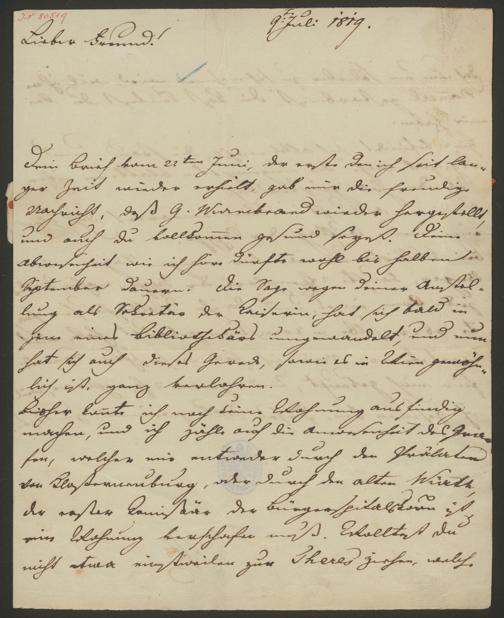 I.N. 80819
9t. Juli 1819.
Lieber Freund!
Dein Brief vom 22ten Juni, der erste den ich seit lan-
ger Zeit wieder erhielt, gab mir die freudige
Nachricht, daß G. Wurmbrand wieder hergestellt,
und auch du vollkommen gesund seyest. Deine
Abwesenheit wie ich höre dürfte wohl bis halben
September dauern. Die Sage wegen deiner Anstel-
lung als Sekretär der Kaiserin, hat sich bald in
jene eines Bibliothekärs umgewandelt, und nun
hat sich auch dieses Gerede, sowie es in Wien gewöhn-
lich ist, ganz verlohren.
Bisher konnte ich noch keine Wohnung ausfindig
machen, und ich zähle auf die Anwesenheit des Gra-
fen, welcher mir entweder durch den Prälaten
von Klosterneuburg, oder durch den alten Wirth,
der erster Kanzl der Bürgerspitals ist,
eine Wohnung verschaffen muß. Wolltest du
nicht etwa einstweilen zur Theres ziehen, welche